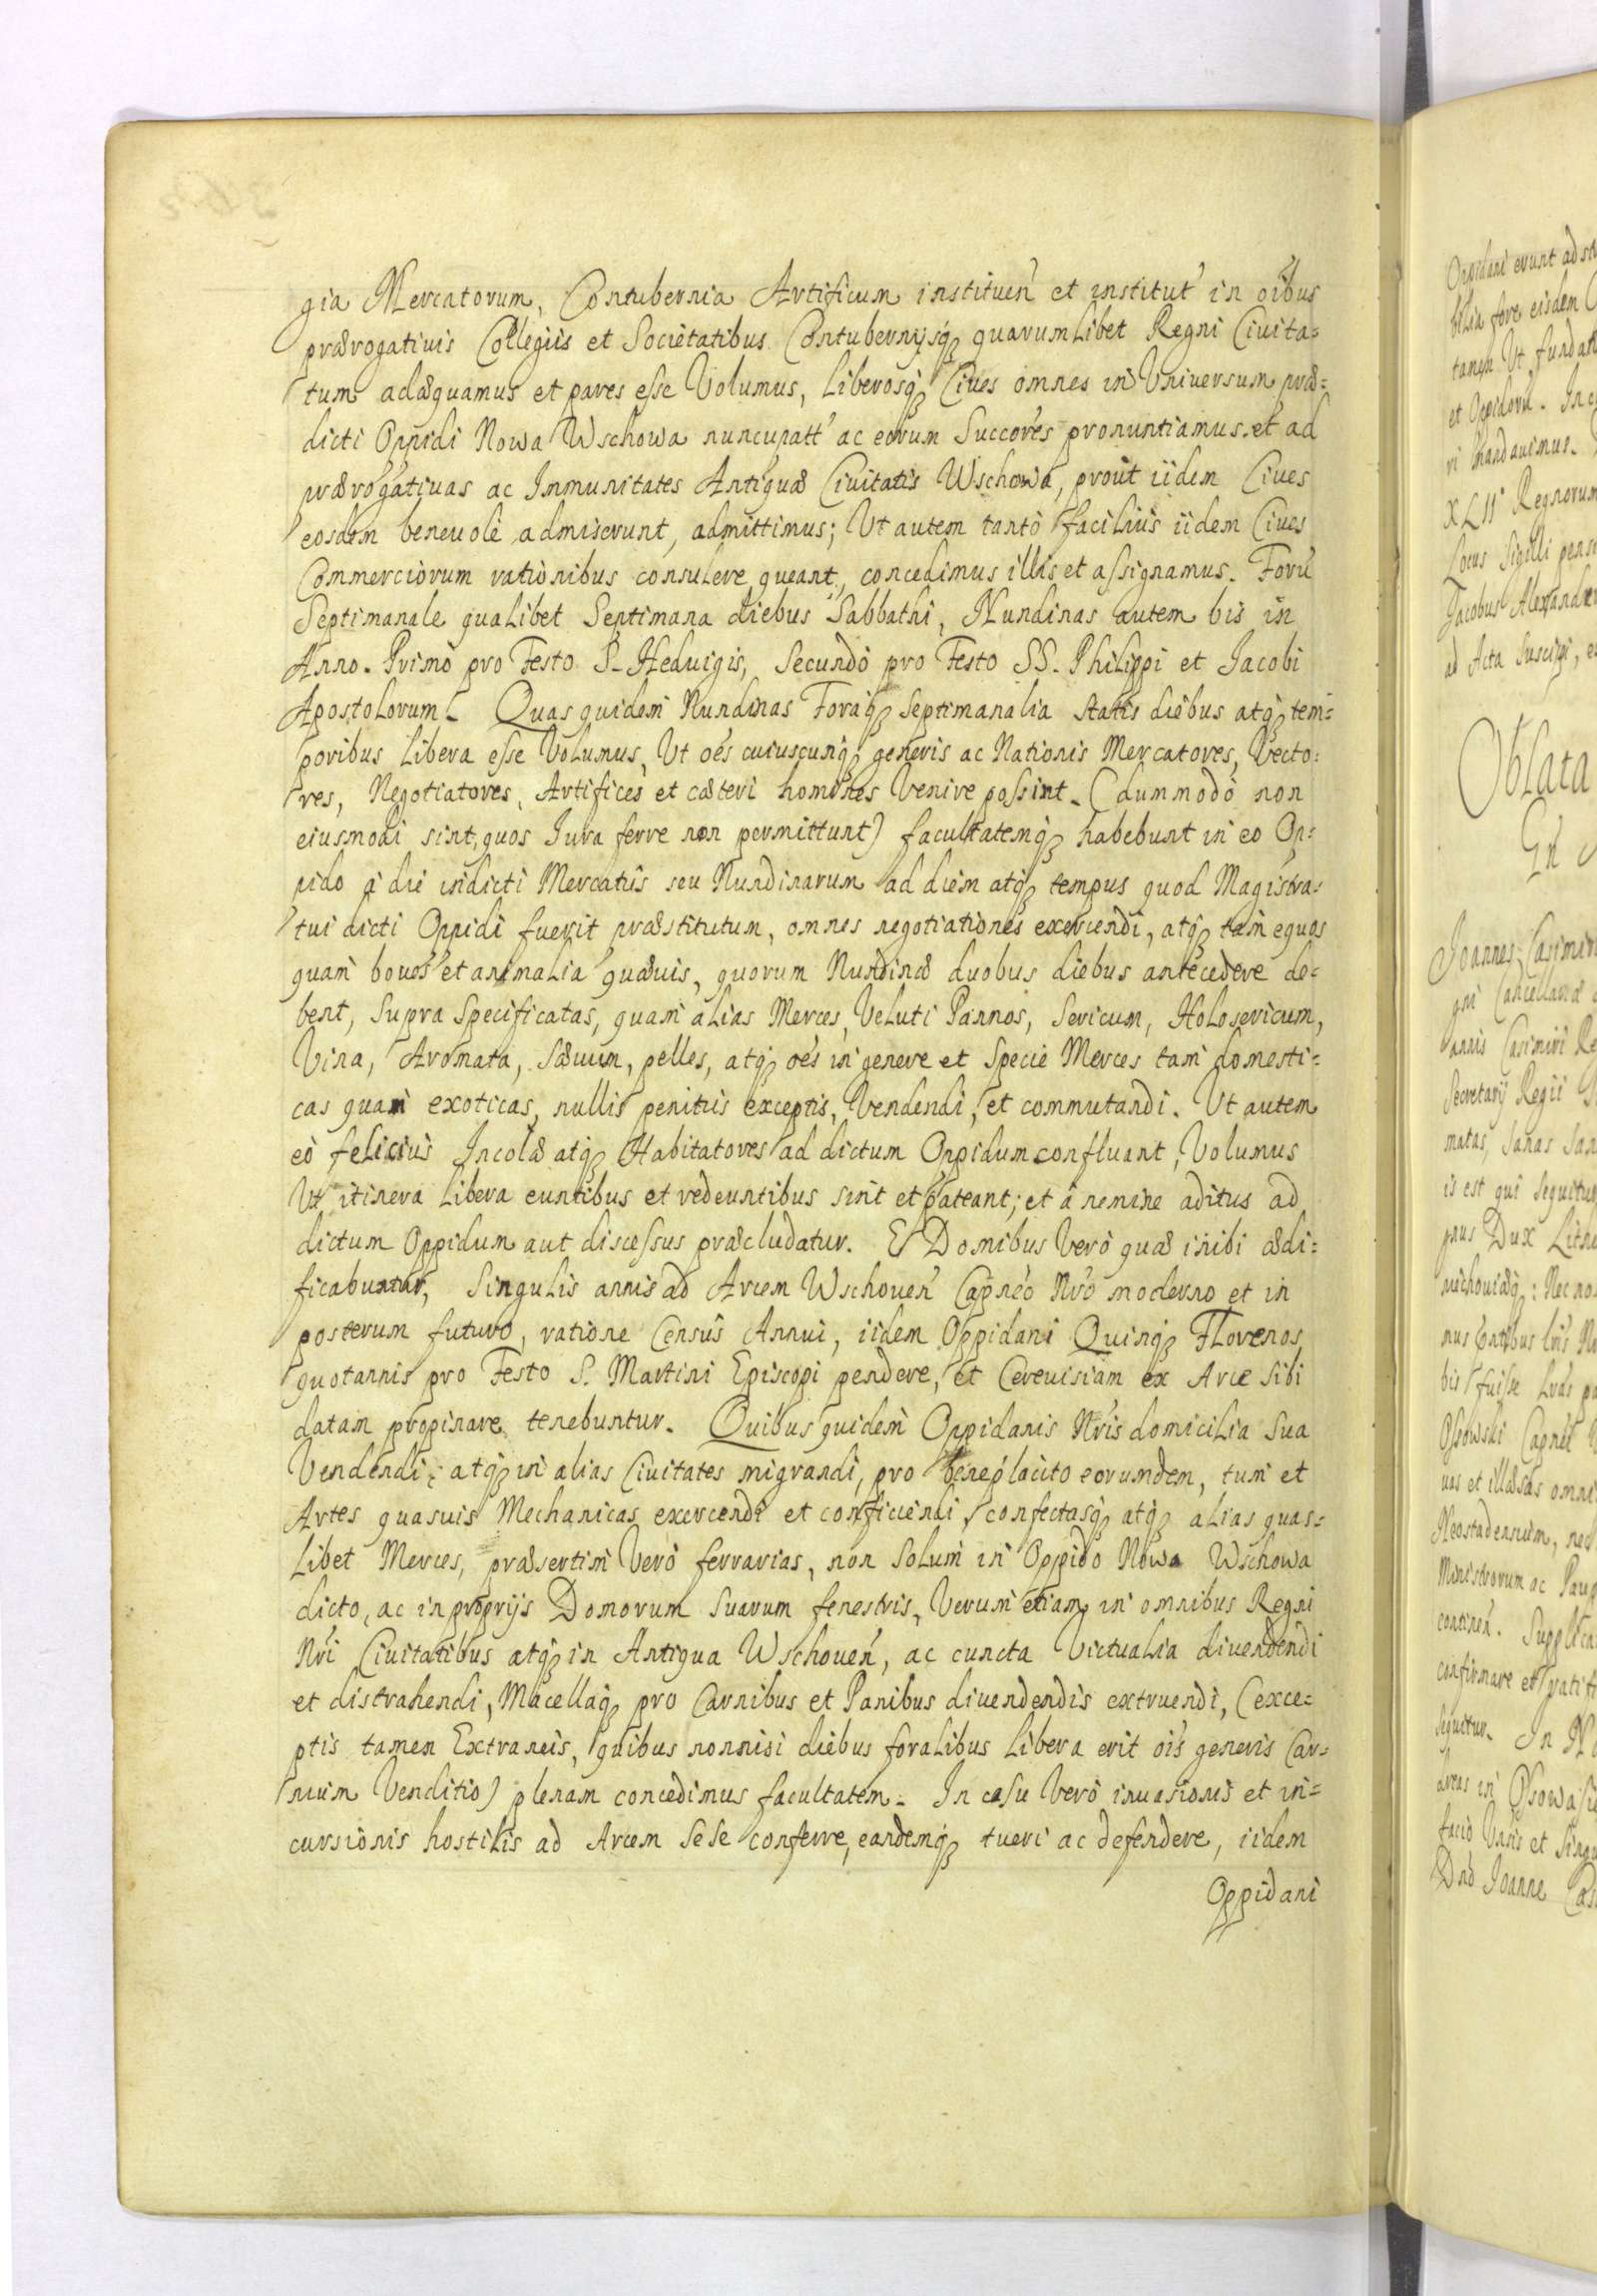 gia Mercatorum, Contubernia Artificum institueñ et institut' in oîbus
prærogatiuis Collegiis et Societatibus Contubernijsq̨ quarumlibet Regni Ciuita=
tum adæquamus et pares esse Volumus, Liberosq̨ Ciues omnes in Vniversum præ=
dicti Oppidi Nowa Wschowa nuncupatt' ac eorum Succores pronuntiamus. et ad
prærogatiuas ac Immunitates Antiquæ Ciuitatis Wschowa, prout iidem Ciues
eosdem beneuolè admiserunt, admittimus; Vt autem tantò faciliùs iidem Ciues
Commerciorum rationibus consulere queant, concedimus illis et assignamus. Forũ
Septimanale qualibet Septimana diebus Sabbathi, Nundinas autem bis in
Anno. Primò pro Festo S. Heduigis, Secundò pro Festo SS. Philippi et Jacobi
Apostolorum. Quas quidem Nundinas Foraq̨ Septimanalia statis diebus atq̨ tem=
poribus Libera esse Volumus, Vt oẽs cuiuscunq̨ generis ac Nationis Mercatores, Vecto=
res, Negotiatores, Artifices et cæteri homines Venire possint. (dummodò non
eiusmodi sint, quos Jura ferre non permittunt) facultatemq̨ habebunt in eo Op=
pido à die indicti Mercatûs seu Nundinarum ad diem atq̨ tempus quod Magistra=
tui dicti Oppidi fuerit præstitutum, omnes negotiationes exercendi, atq̨ tam equos
quam boues et animalia quæuis, quorum Nundinæ duobus diebus antecedere de=
bent, Supra Specificatas, quam alias Merces, Veluti Pannos, Sericum, Holosericum,
Vina, Aromata, Sæuum, pelles, atq̨ oẽs in genere et Specie Merces tam domesti=
cas quam exoticas, nullis penitus exceptis, Vendendi, et commutandi. Vt autem
eò feliciùs Incolæ atq̨ Habitatores ad dictum Oppidum confluant, Volumus
Vt itinera Libera euntibus et redeuntibus sint et pateant; et à nemine aditus ad
dictum Oppidum aut discessus præcludatur. E Domibus Verò quæ inibi ædi=
ficabuntur, Singulis annis ad Arcem Wschoueñ Capneo Nrõ moderno et in
posterum futuro, ratione Censûs Annui, iidem Oppidani Quinq̨ Florenos
quotannis pro Festo S. Martini Episcopi pendere, et Cereuisiam ex Arce Sibi
datam propinare tenebuntur. Quibus quidem Oppidanis Nrĩs domicilia Sua
Vendendi, atq̨ in alias Ciuitates migrandi, pro beneplacito eorumdem, tum et
Artes quasuis Mechanicas exercendi et conficiendi, confectasq̨ atq̨ alias quas=
libet Merces, præsertim Verò ferrarias, non Solum in Oppido Nowa Wschowa
dicto, ac in proprijs Domorum Suarum fenestris, Verum etiam in omnibus Regni
Nrĩ Ciuitatibus atq̨ in Antiqua Wschoueñ, ac cuncta Victualia diuendendi
et distrahendi, Macellaq̨ pro Carnibus et Panibus diuendendis extruendi, (exce=
ptis tamen Extraneis, quibus nonnisi diebus foralibus Libera erit oĩs generis Car=
nium Venditio) plenam concedimus facultatem. In casu Verò inuasionis et in=
cursionis hostilis ad Arcem Sese conferre, eandemq̨ tueri ac defendere, iidem
Oppidani
Oppidani erunt
bilia fore eisdem
tamen Vt fundat
et Oppidoru. In
ri mandauimus.
XLII Regnorum
Locus Sigilli pens
Jacobus Alexander
ad Acta Suscipi, e
Oblata
In
Joannes Casimir
gni Cancellariæ
annis Casimiri Re
Secretarij Regii
matas, Sanas San
is est qui Sequitur
gnus Dux Lithu
: Nec no
bis fuisse Lrãs pa
Capnei
uas et illæsas omni
Neostadensium, nec
Ministrorum ac
continen. Supplica
confirmare et ratifi
Sequitur. In No
areas in
facio Vnis et Singu
Dnõ Joanne Cas